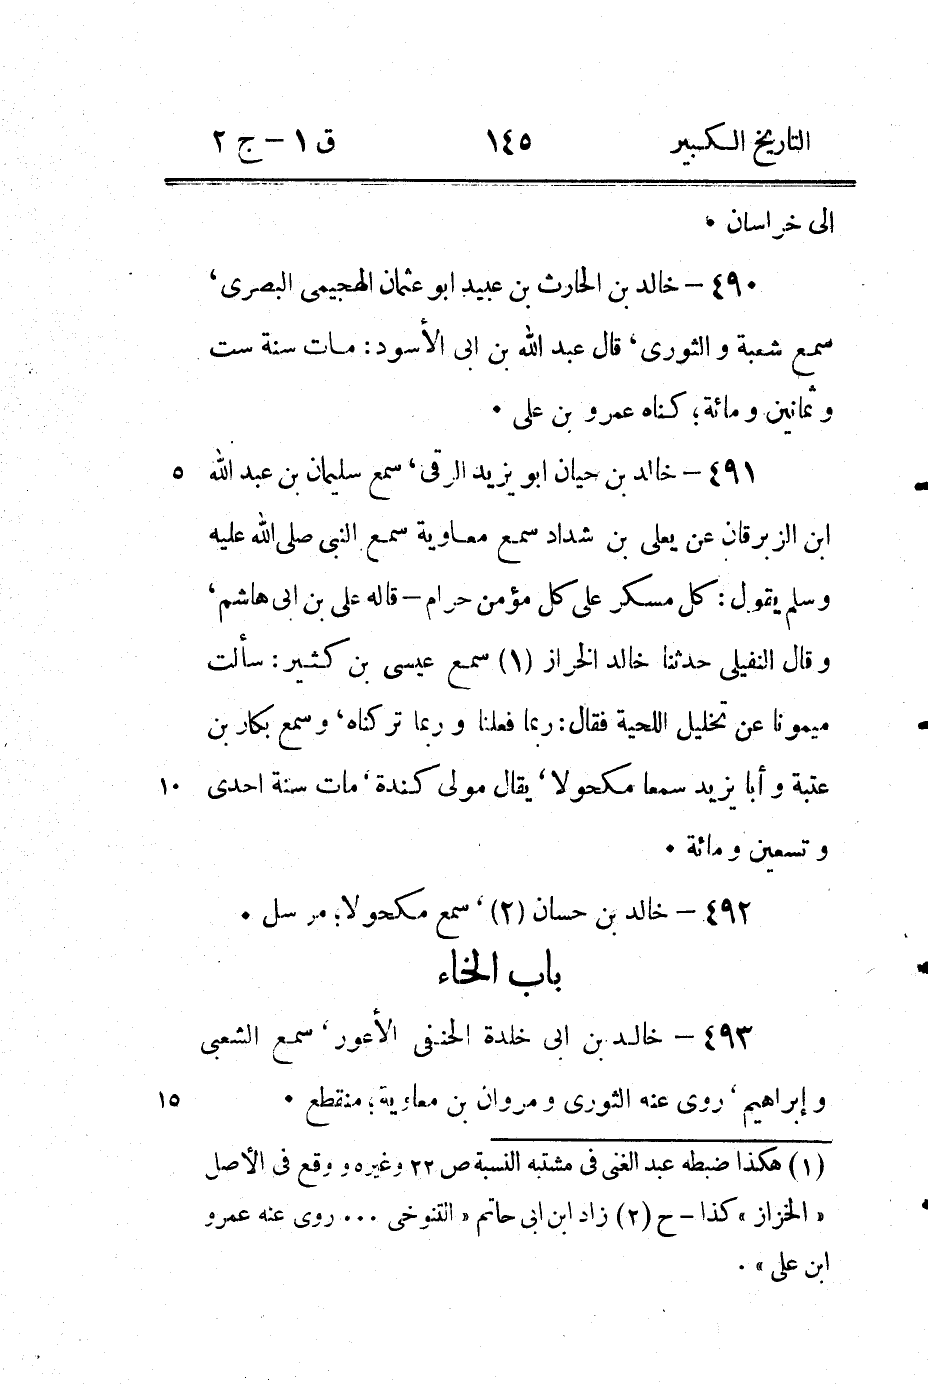 التاريخ الكبير ١٤٥ ق ١ - ج ٢
الى خراسان •
٤٩٠ - خالد بن الحارث بن عبيد ابو عثمان الهجيمى البصرى،
سمع شعبة و الثورى، قال عبد الله بن ابى الأسود: مات سنة ست
و ثمانين و مائة؛ كناه عمرو بن على •
٤٩١ - خالد بن حيان ابو يزيد الرقى، سمع سليمان بن عبد الله ٥
ابن الزبرقان عن يعلى بن شداد سمع معاوية سمع النبى صلى الله عليه
و سلم يقول: كل مسكر على كل مؤمن حرام - قاله على بن ابى هاشم،
و قال النفيلى حدثنا خالد الخراز (١) سمع عيسى بن كثير: سألت
ميمونا عن تخليل اللحية فقال: ربما فعلنا و ربما تركناه، و سمع بكار بن
عتبة و أبا يزيد سمعا مكحولا، يقال مولى كندة، مات سنة احدى ١٠
و تسعين و مائة •
٤٩٢ - خالد بن حسان (٢)، سمع مكحولا؛ مرسل •
باب الخاء
٤٩٣ - خالد بن ابى خلدة الحنفى الأعور، سمع الشعبى
و إبراهيم، روى عنه الثورى و مروان بن معاوية؛ منقطع • ١٥
(١) هكذا ضبطه عبد الغنى فى مشتبه النسبة ص ٢٢ وغيره و وقع فى الأصل
« الخزاز » كذا - ح (٢) زاد ابن ابى حاتم « التنوخى ... روى عنه عمرو
ابن على » .